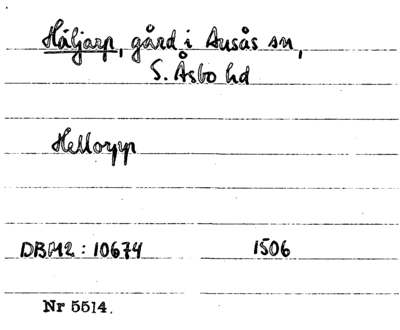 Häljarp, gård i Ausås sn,
S. Åsbo hd
Helloryp
DBM2: 10674 1506
Nr 5514.